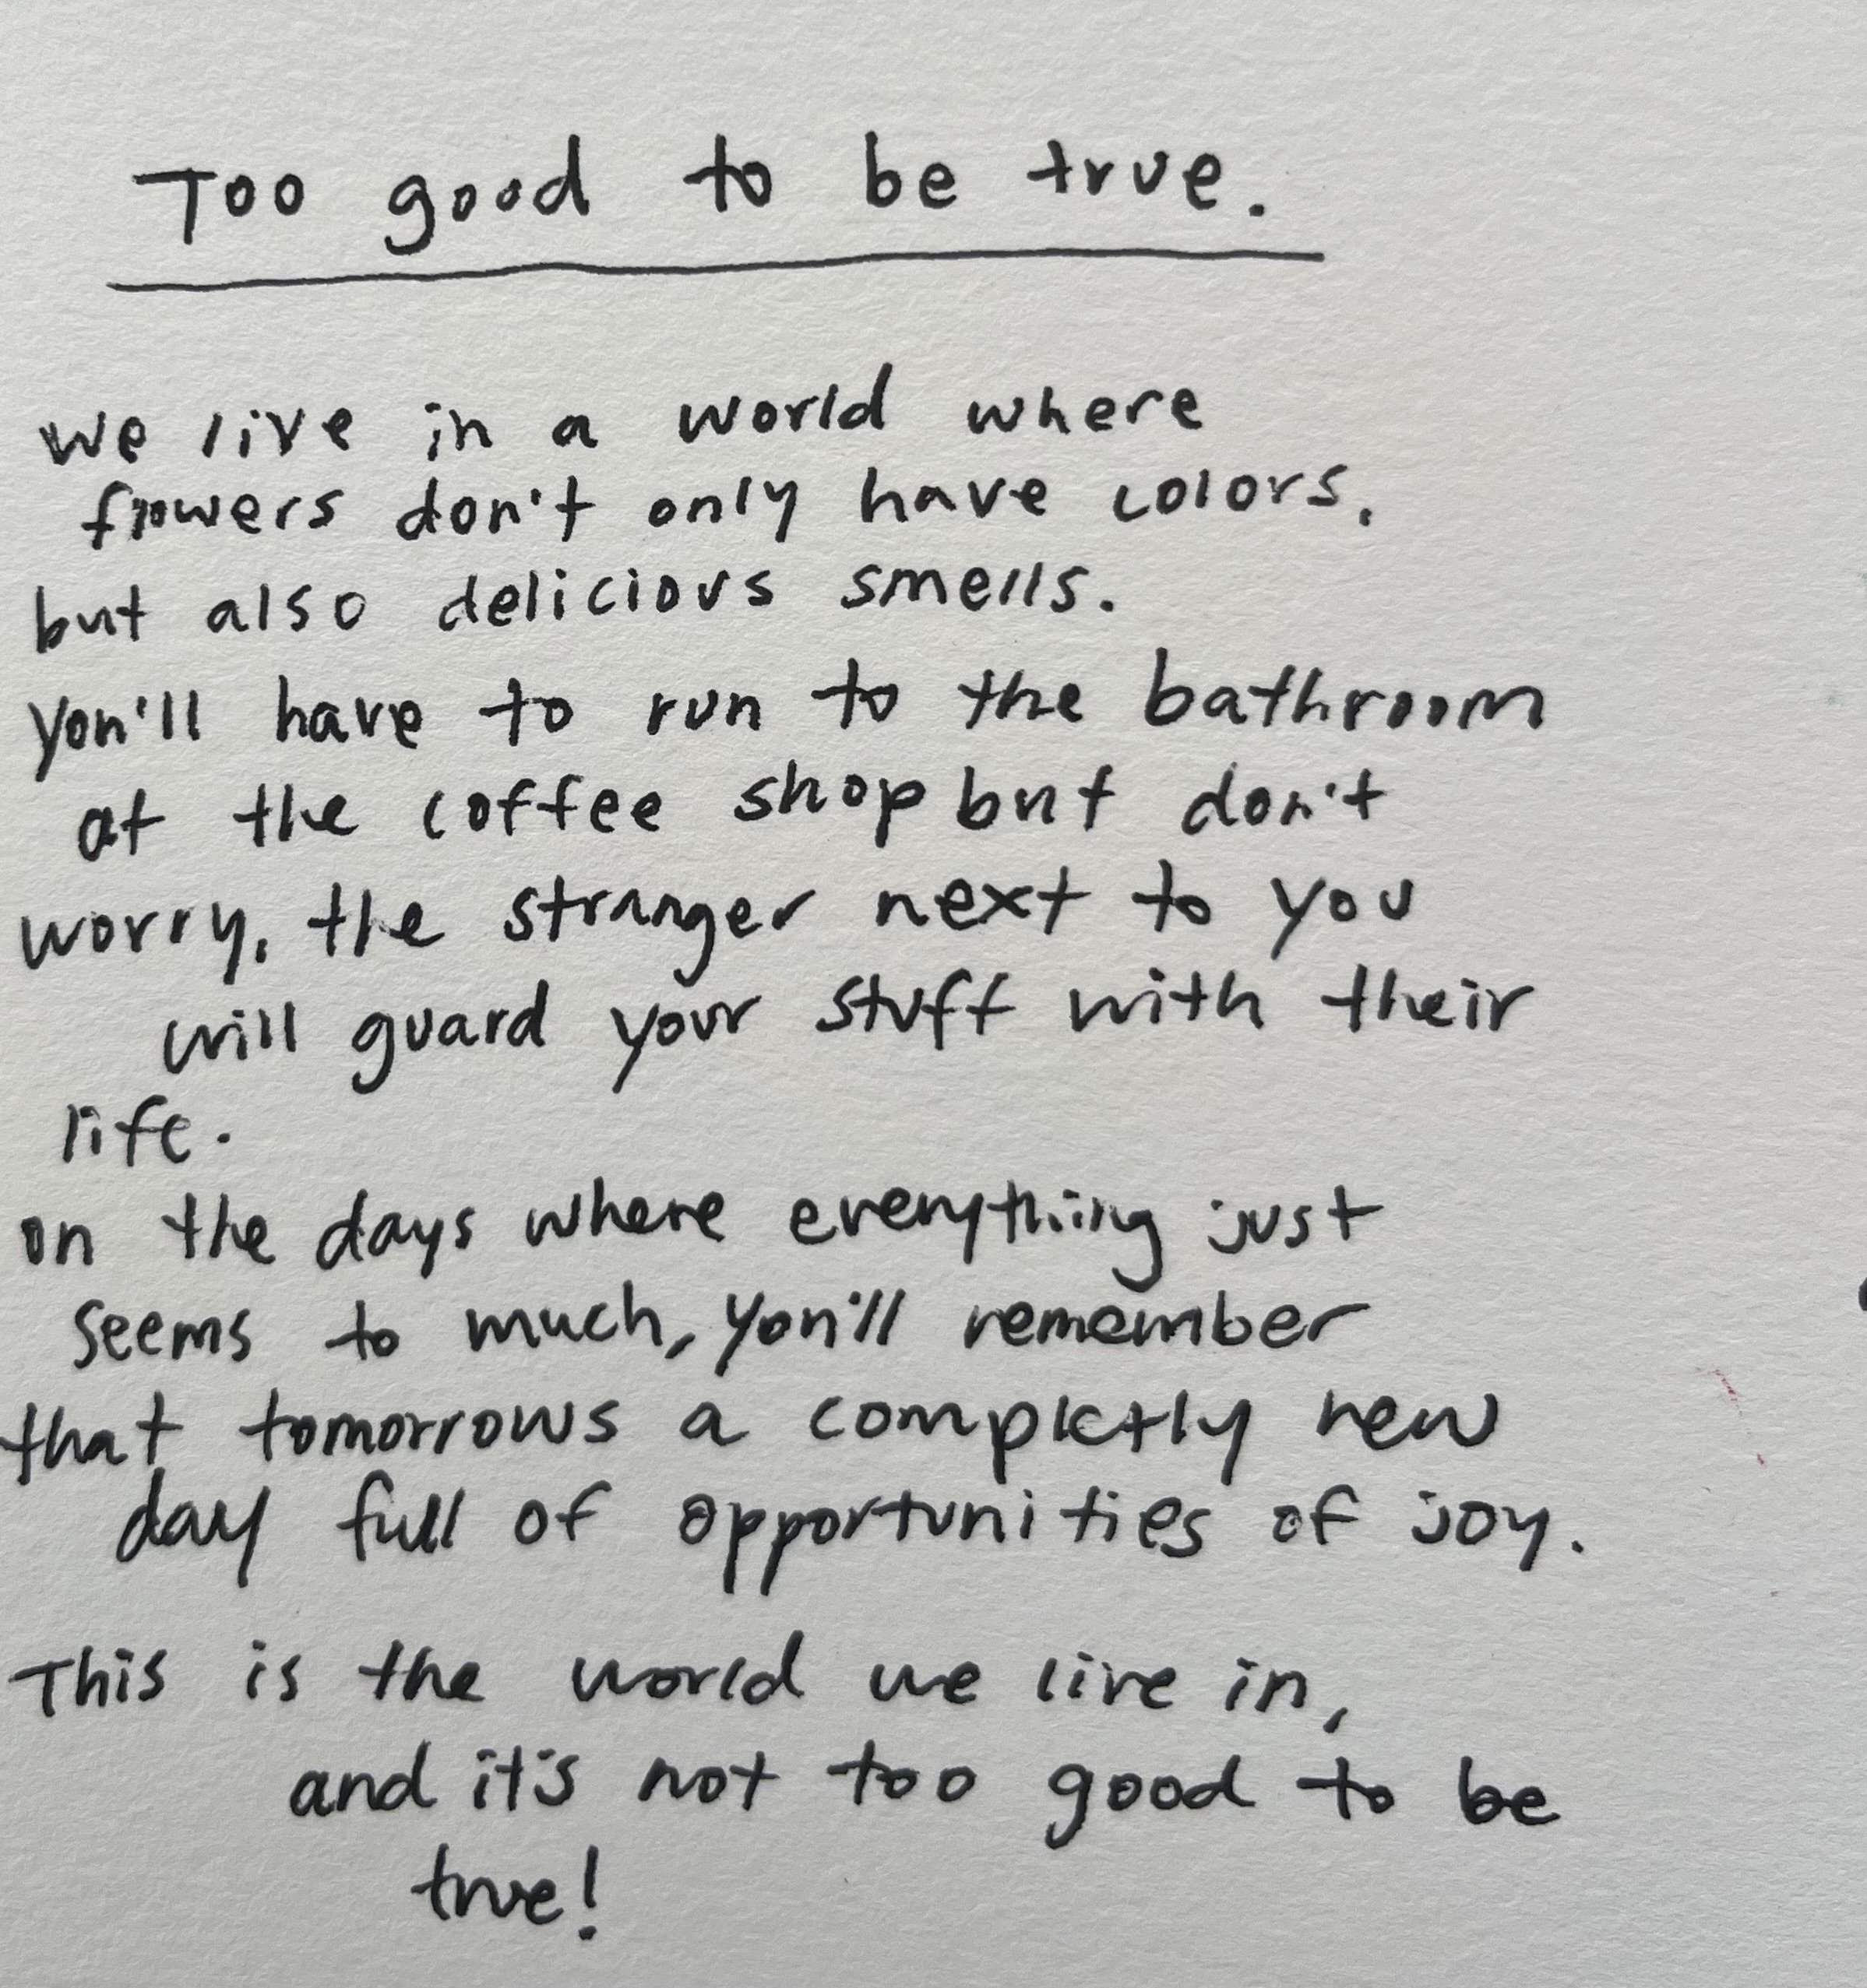 Too good to be true.
we live in a world where
flowers don't only have colors,
but also delicious smells.
you'll have to run to the bathroom
at the coffee shop but don't
worry, the stranger next to you
will guard your stuff with their
life.
on the days where everything just
seems to much, you'll remember
that tomorrows a completly new
day full of opportunities of joy.
This is the world we live in,
and it's not too good to be
true!